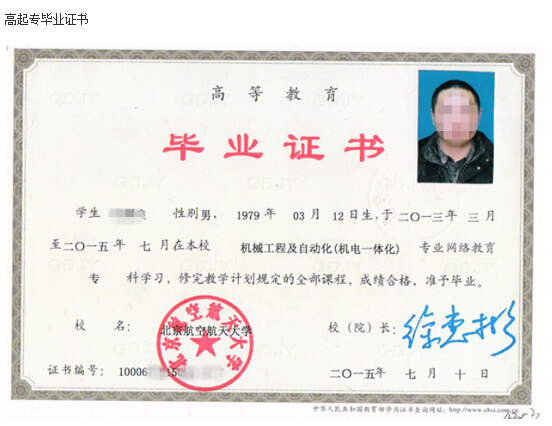 高起专毕业证书
高等教育
毕业证书
学生 性别男，1979年 03月 12日生，于二〇一三年 三月
至二〇一五年 七月在本校 机械工程及自动化(机电一体化) 专业网络教育
专 科学习，修完教学计划规定的全部课程，成绩合格，准予毕业。
校 名： 北京航空航天大学
北京航空航天大学
校（院）长： 徐惠彬
证书编号： 10006 15
二〇一五年 七月 十日
中华人民共和国教育部学历证书查询网址：http://www.chsi.com.cn